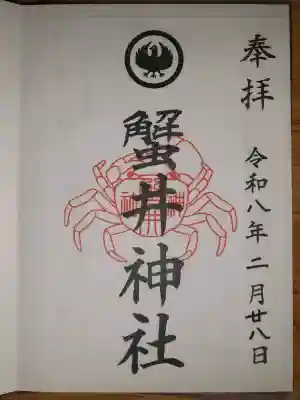 奉拝
令和八年二月廿八日
蟹井神社